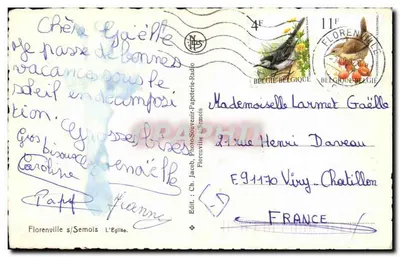 Chère Gaëlle
je passe de bonnes
vacances sous le
soleil en decomposi
tion. Grosses bises
Gros
bisoux
Caroline
Papy
Florenville s/Semois L'Eglise.
Edit.: Ch. Jacob, Photo-Souvenir-Papeterie-Radio
Florenville s/Semois
4F
BELGIE-BELGIQUE
11F
BELGIE BELGIQUE
FLORENVILLE
Mademoiselle Larmet Gaëlle
2 rue Henri Daveau
F. 91170 Viry-Chatillon
FRANCE